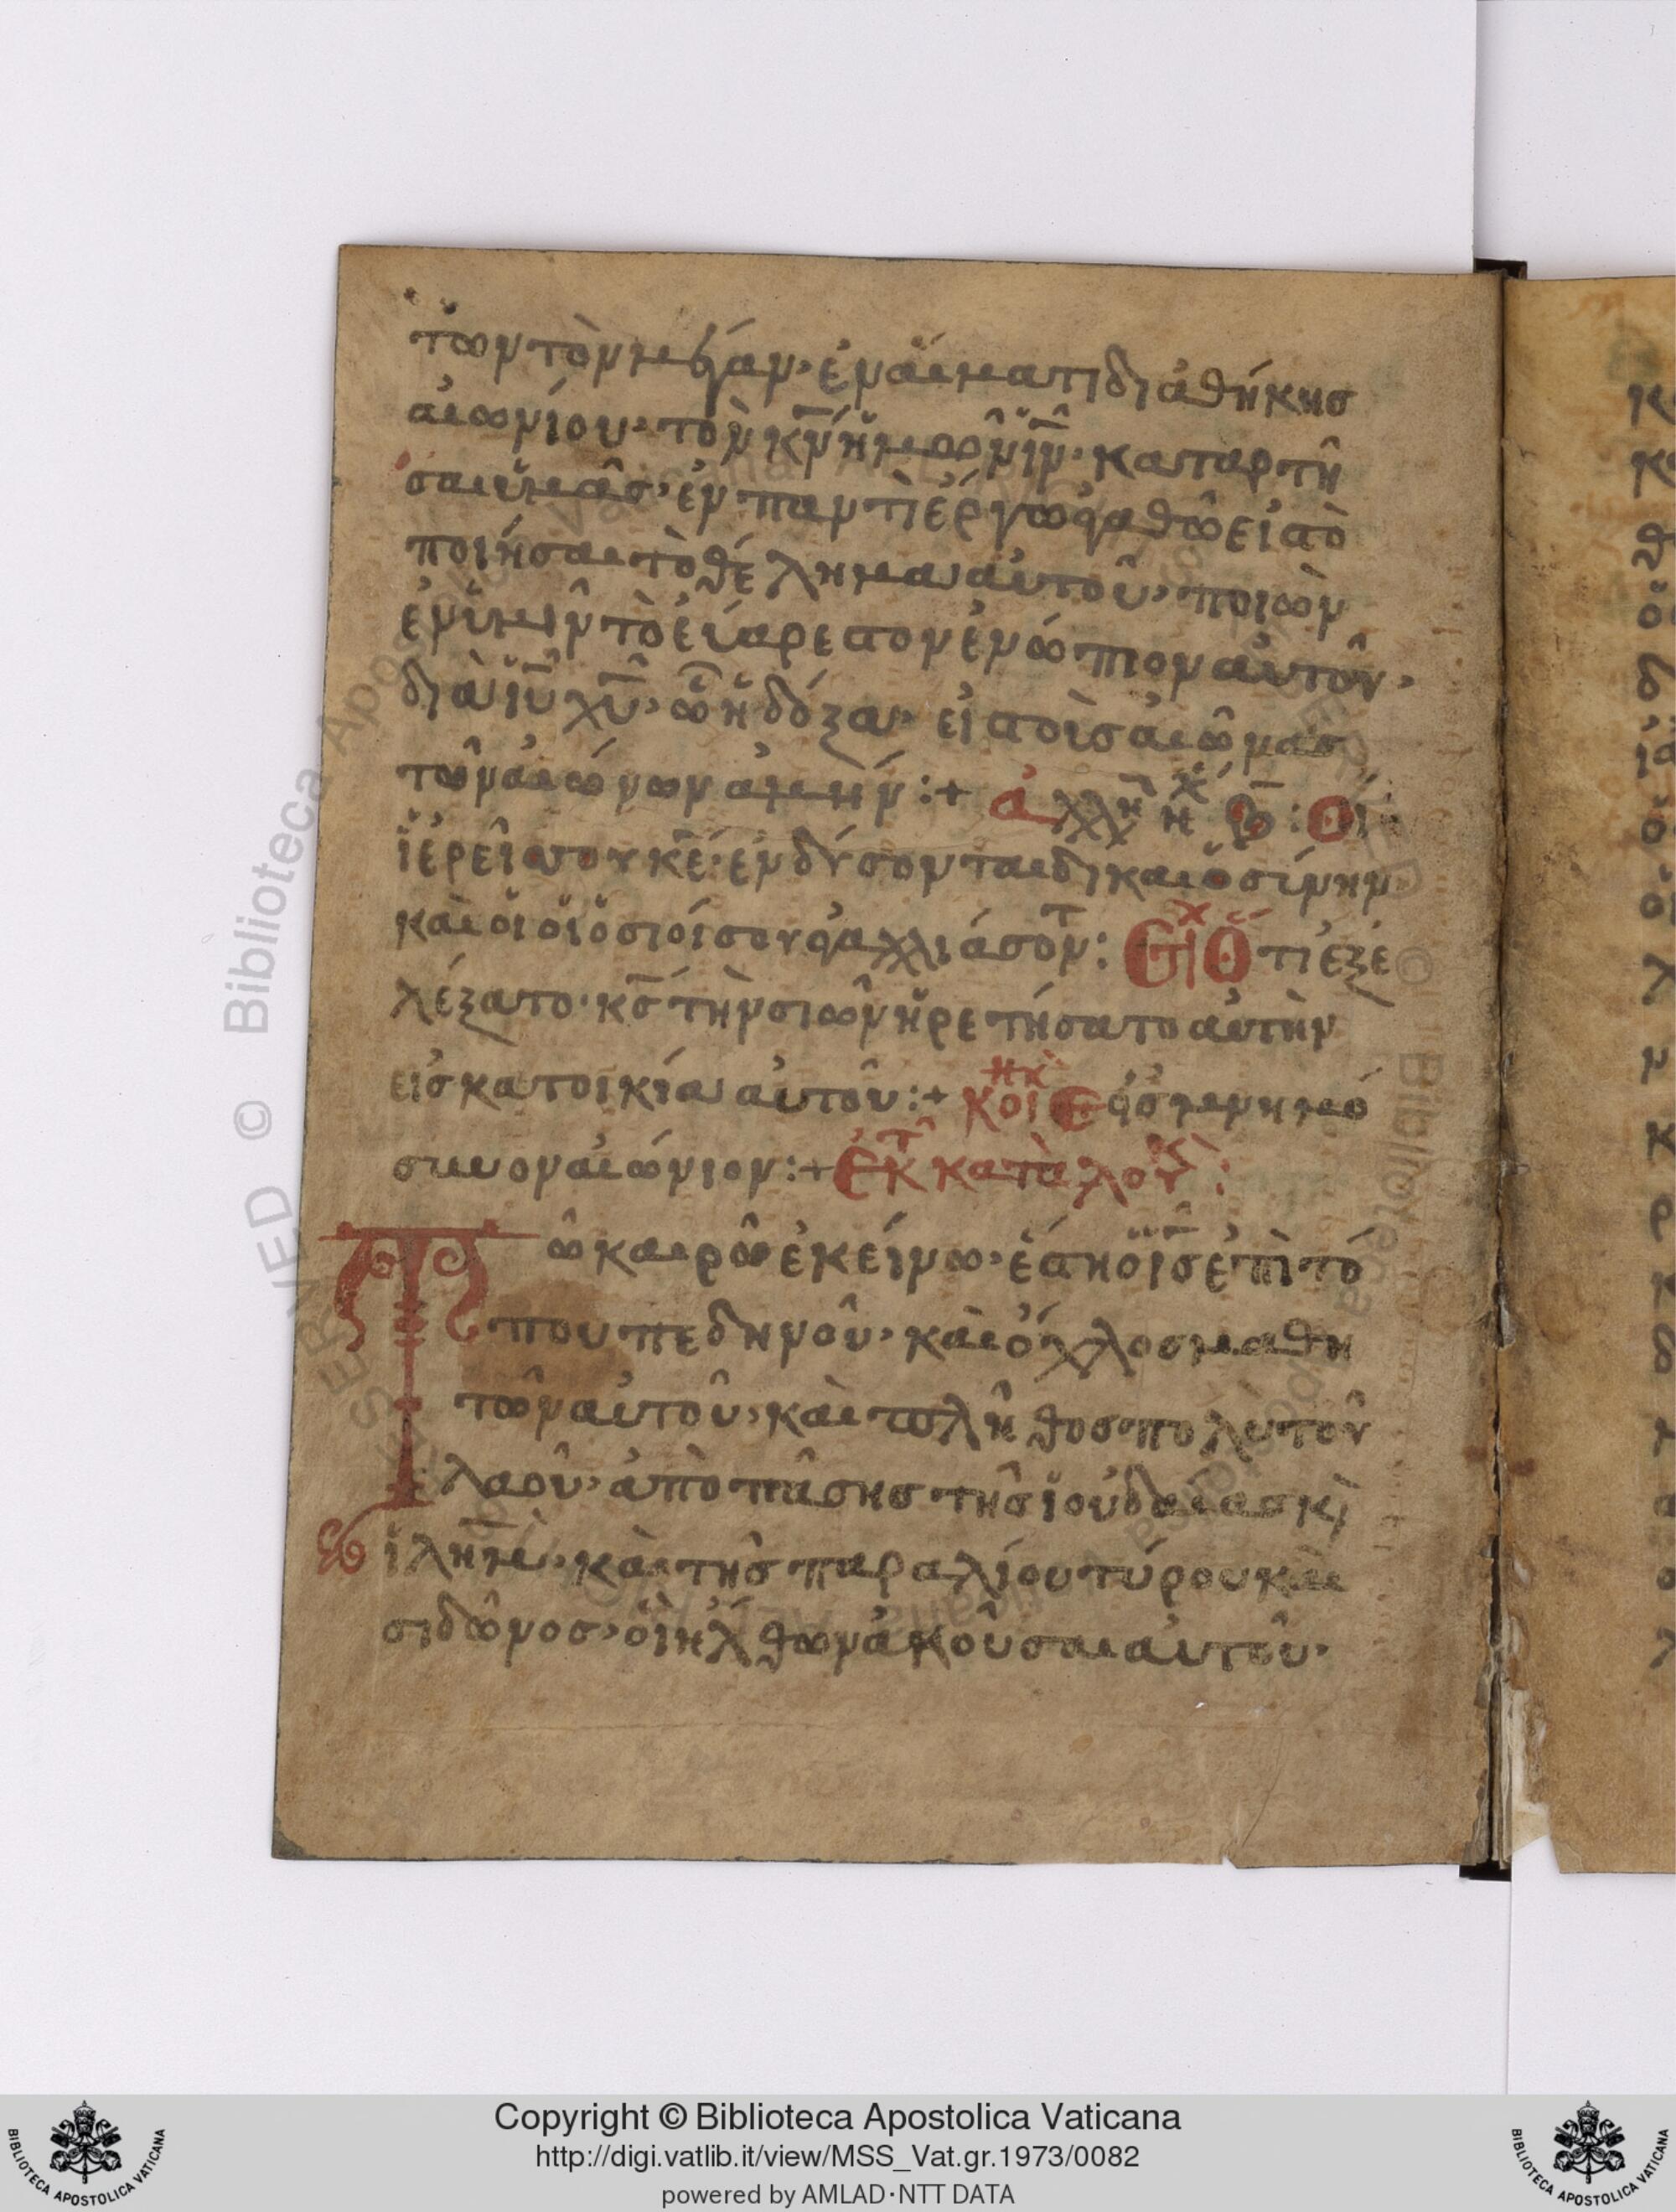 τῶν τὸν μέγαν· ἐν αἵματι διαθήκης
αἰωνίου· τὸν κ̅ν̅ ἡμῶν ι̅ν̅· καταρτῆ
σαι ὑμᾶς· ἐν παντὶ ἔργω ἀγαθῶ εἰς τὸ
ποιῆσαι τὸ θέλημα αὐτοῦ· ποιῶν
ἐν ὑμῖν τὸ εὐάρεστον ἐνώπιον αὐτοῦ·
διὰ ι̅υ̅ χ̅υ̅· ὧ ἡ δόξα· εἰς τοὺς αἰῶνας
τῶν αἰώνων ἀμήν :+ ἀλλη ἠχ β : Οἱ
ἱερεῖς σου κ̅ε̅· ἐνδύσονται δικαιοσύνην
καὶ οἱ ὅσιοί σου ἀγαλλιάσοντ : Στιχ Ὅτι ἐξε
λέξατο· κ̅ς̅ τὴν σιὼν ἡρετήσατο αὐτὴν
εἰς κατοικία αὐτοῦ :+ κοιν Εἰς μνημό
συνον αἰώνιον :+ ἐκ τ κατὰ λουκ :
Τῶ καιρῶ ἐκείνω· ἔστη ὁ ι̅ς̅ ἐπὶ τό
που πεδηνοῦ· καὶ ὄχλος μαθη
τῶν αὐτοῦ· καὶ πλῆθος πολυ τοῦ
λαοῦ· ἀπὸ πάσης τῆς ἰουδαίας κ̀
ι̅λ̅η̅μ̅· καὶ τῆς παραλίου τύρου καὶ
σιδῶνος· οἳ ἦλθων ἀκοῦσαι αὐτοῦ·
Copyright © Biblioteca Apostolica Vaticana
http://digi.vatlib.it/view/MSS_Vat.gr.1973/0082
powered by AMLAD·NTT DATA
BIBLIOTECA APOSTOLICA VATICANA
BIBLIOTECA APOSTOLICA VATICANA